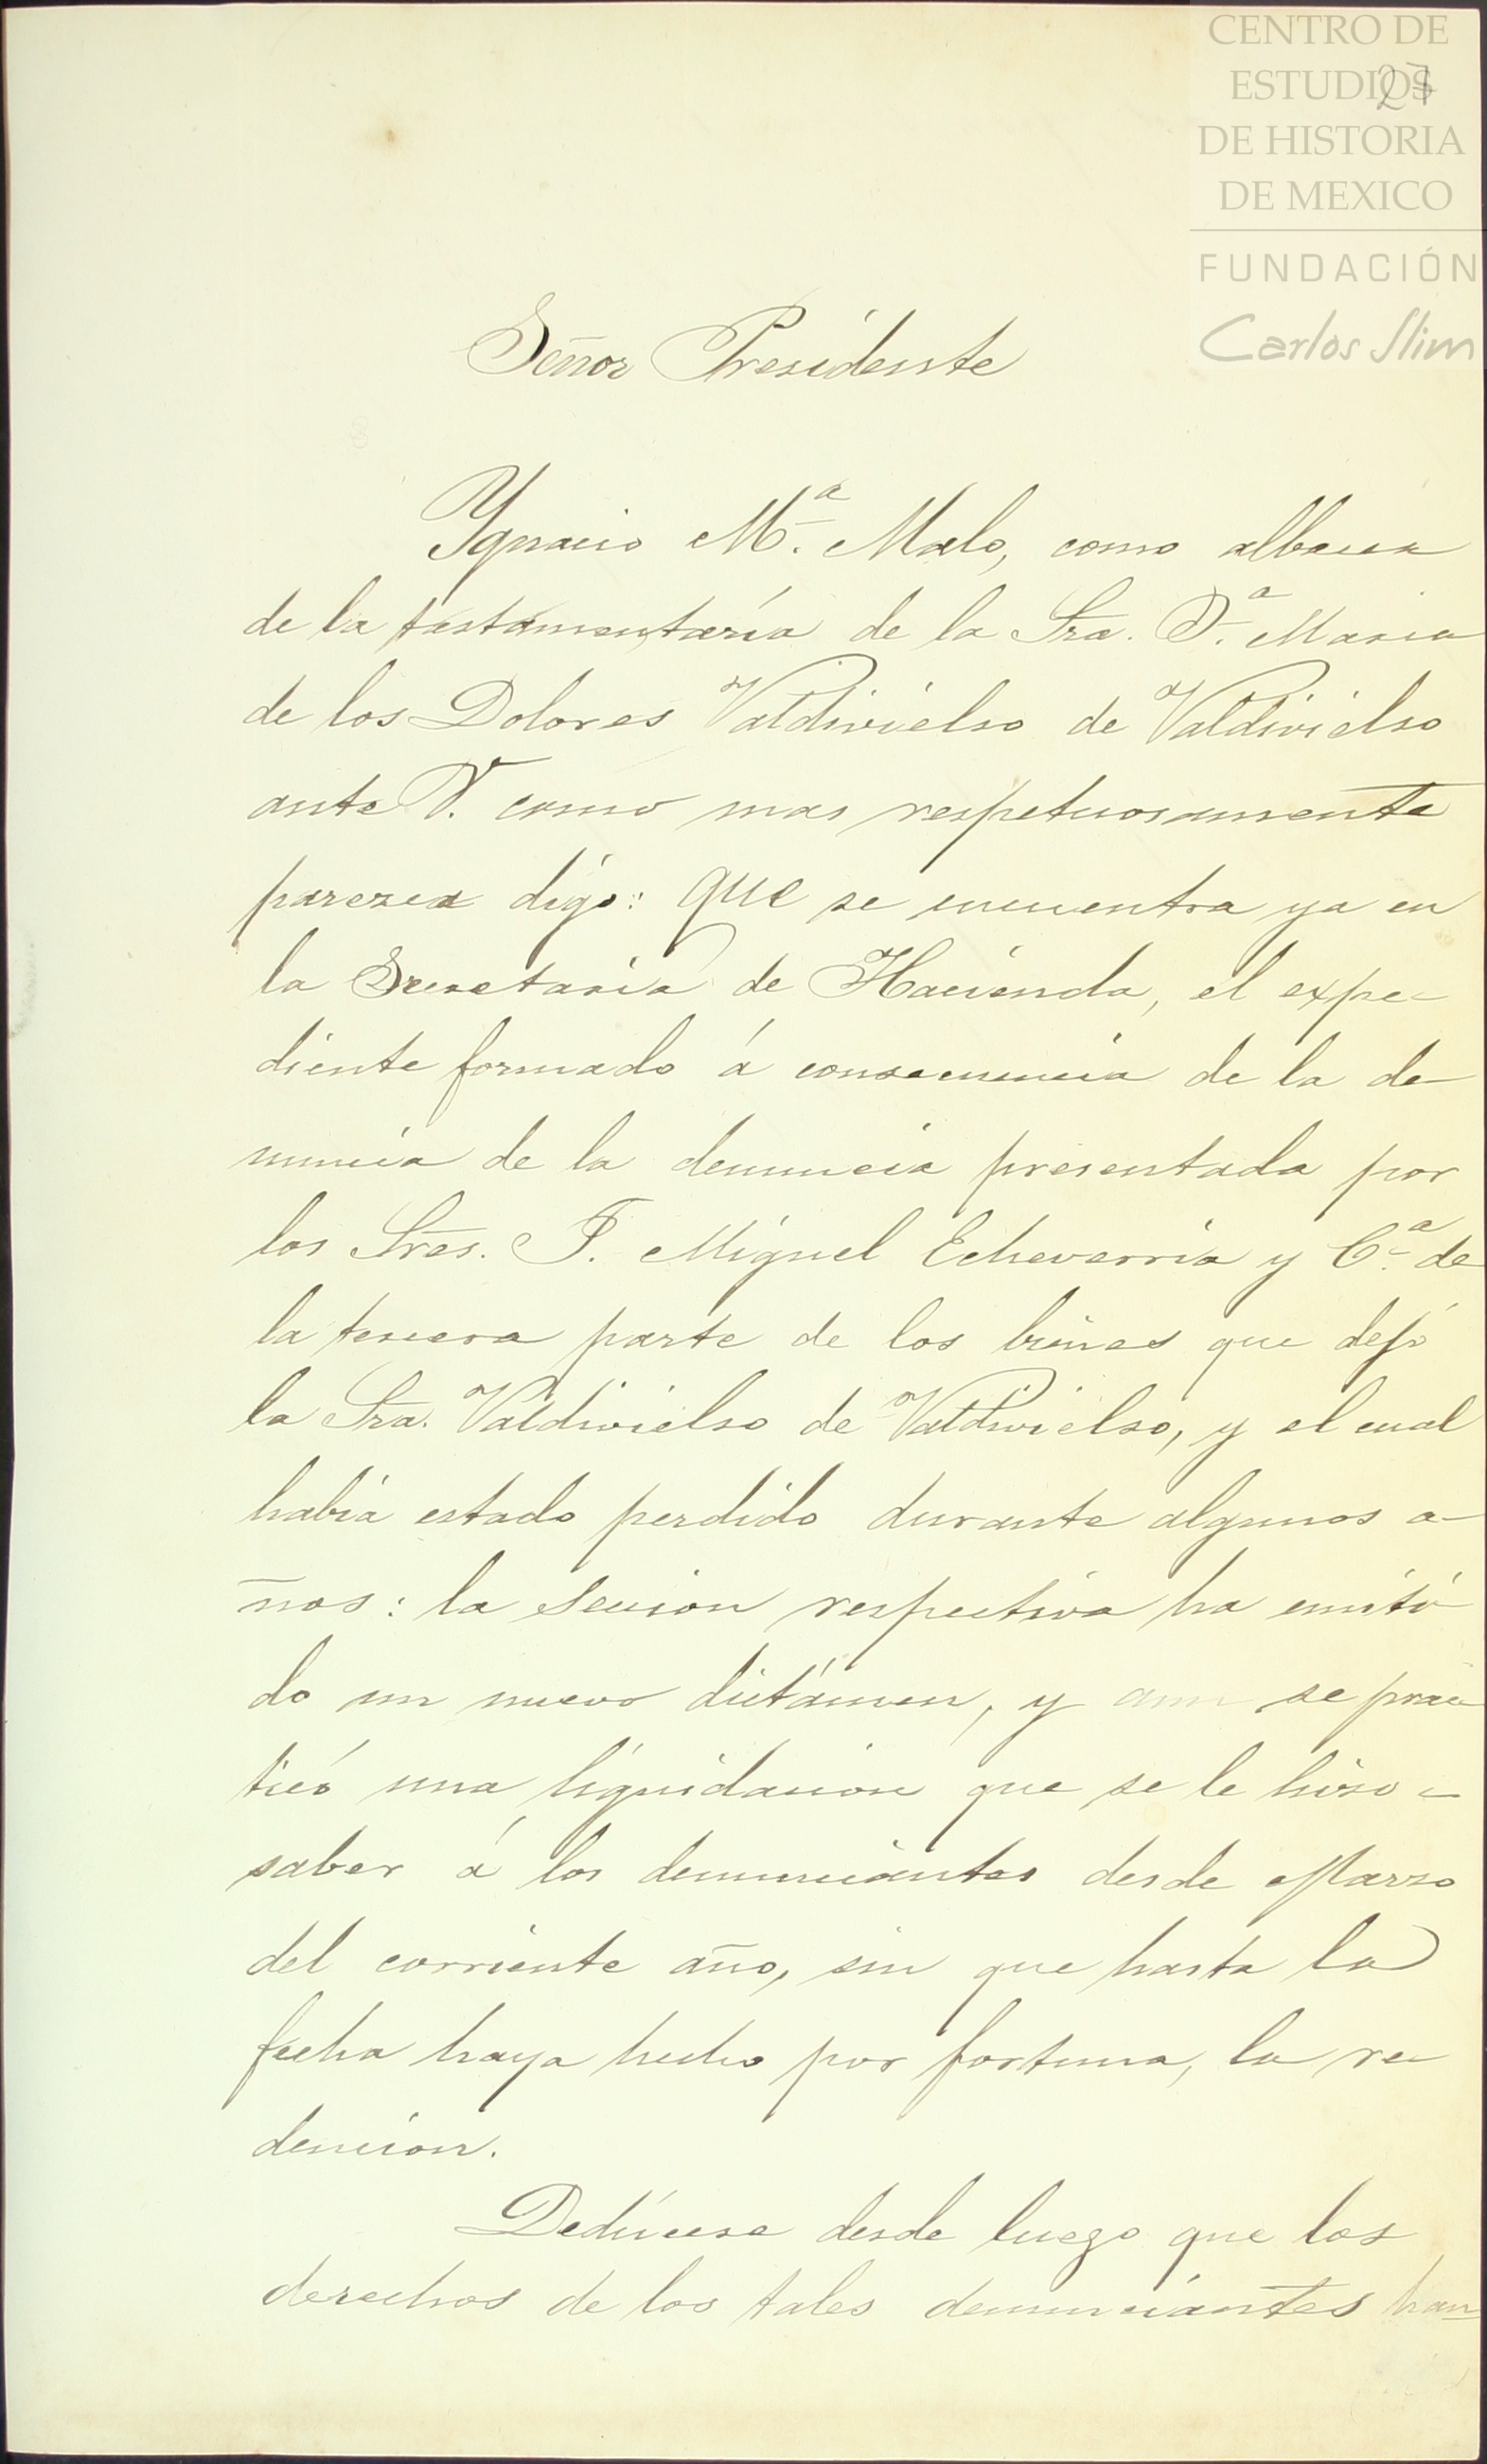 CENTRO DE
ESTUDIOS
27
DE HISTORIA
DE MEXICO
FUNDACIÓN
Carlos Slim
Señor Presidente
Ygnacio M.ª Malo, como albacea
de la testamentaría de la Sra. D.ª Maria
de los Dolores Valdivielso de Valdivielso
ante V. como mas respetuosamente
parezca digo: que se encuentra ya en
la Secretaria de Hacienda, el expe-
diente formado á consecuencia de la de-
nuncia de la denuncia presentada por
los Sres. F. Miguel Echeverria y C.ª de
la tercera parte de los bienes que dejó
la Sra. Valdivielso de Valdivielso, y el cual
habia estado perdido durante algunos a-
ños: la Seccion respectiva ha emiti-
do un nuevo dictámen, y aun se prac-
ticó una liquidacion que se le hizo -
saber á los denunciantes desde Marzo
del corriente año, sin que hasta la
fecha haya hecho por fortuna, la re-
dencion.
Dedúcese desde luego que los
derechos de los tales denunciantes han